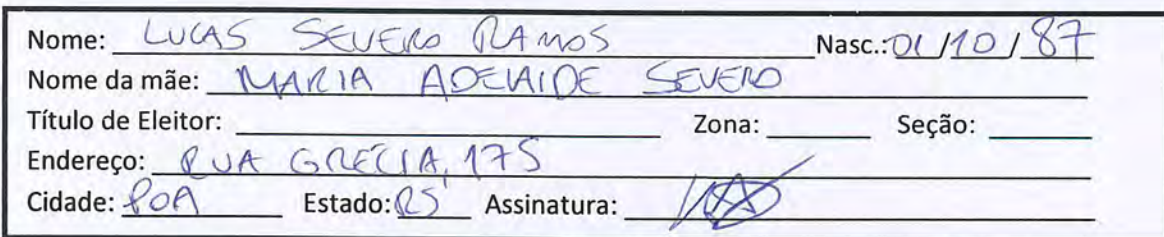 Nome: LUCAS SEVERO RAMOS Nasc.: 01/10/87
Nome da mãe: MARIA ADELAIDE SEVERO
Título de Eleitor: Zona: Seção:
Endereço: RUA GRECIA, 175
Cidade: POA Estado: RS Assinatura: